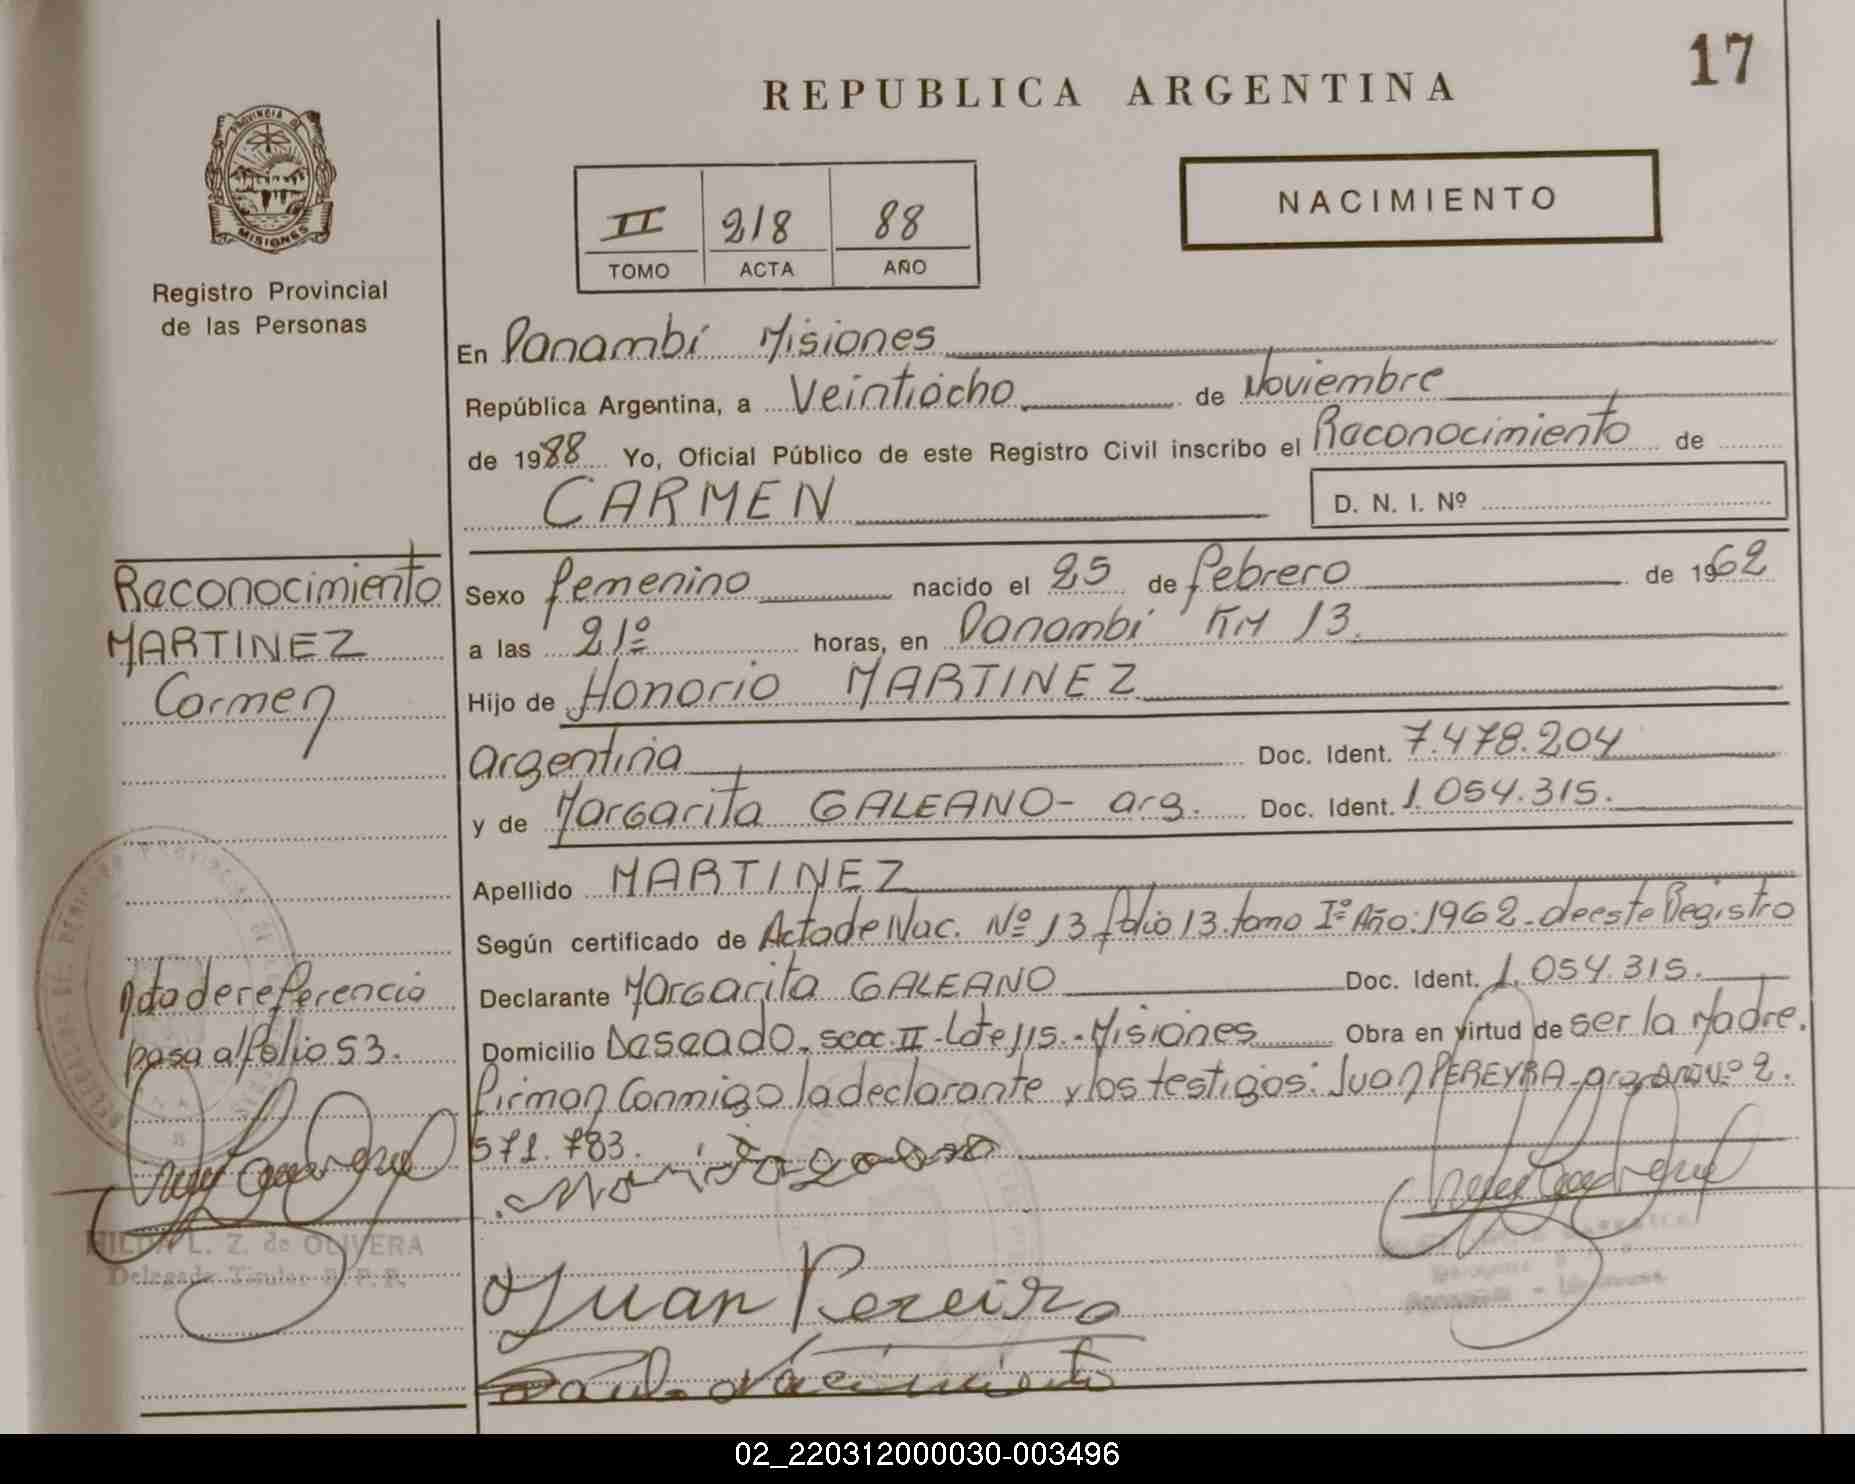 17
REPUBLICA ARGENTINA
PROVINCIA DE
MISIONES
Registro Provincial
de las Personas
II 218 88
TOMO ACTA AÑO
NACIMIENTO
En Panambí Misiones
República Argentina, a Veintiocho de Noviembre
de 1988 Yo, Oficial Público de este Registro Civil inscribo el Reconocimiento de
CARMEN D. N. I. Nº
Reconocimiento
MARTINEZ
Carmen
Sexo femenino nacido el 25 de febrero de 1962
a las 21º horas, en Panambí KM 13.
Hijo de Honorio MARTINEZ
argentina Doc. Ident. 7.478.204
y de Margarita GALEANO- arg. Doc. Ident. 1.054.315.
Apellido MARTINEZ
Según certificado de Acta de Nac. Nº 13 folio 13. tomo Iº Año: 1962- de este Registro
Declarante Margarita GALEANO Doc. Ident. 1.054.315.
Domicilio Deseado. secc. II- Lote 115.-Misiones Obra en virtud de ser la Madre.
Firman conmigo la declarante y los testigos: Juan PEREYRA- 2.
571.783.
Acta de referencia
pasa al folio 53.
HILDA L. Z. de OLIVERA
Delegada Titular R. P. P.
Juan Pereira
Nacimiento
02_220312000030-003496